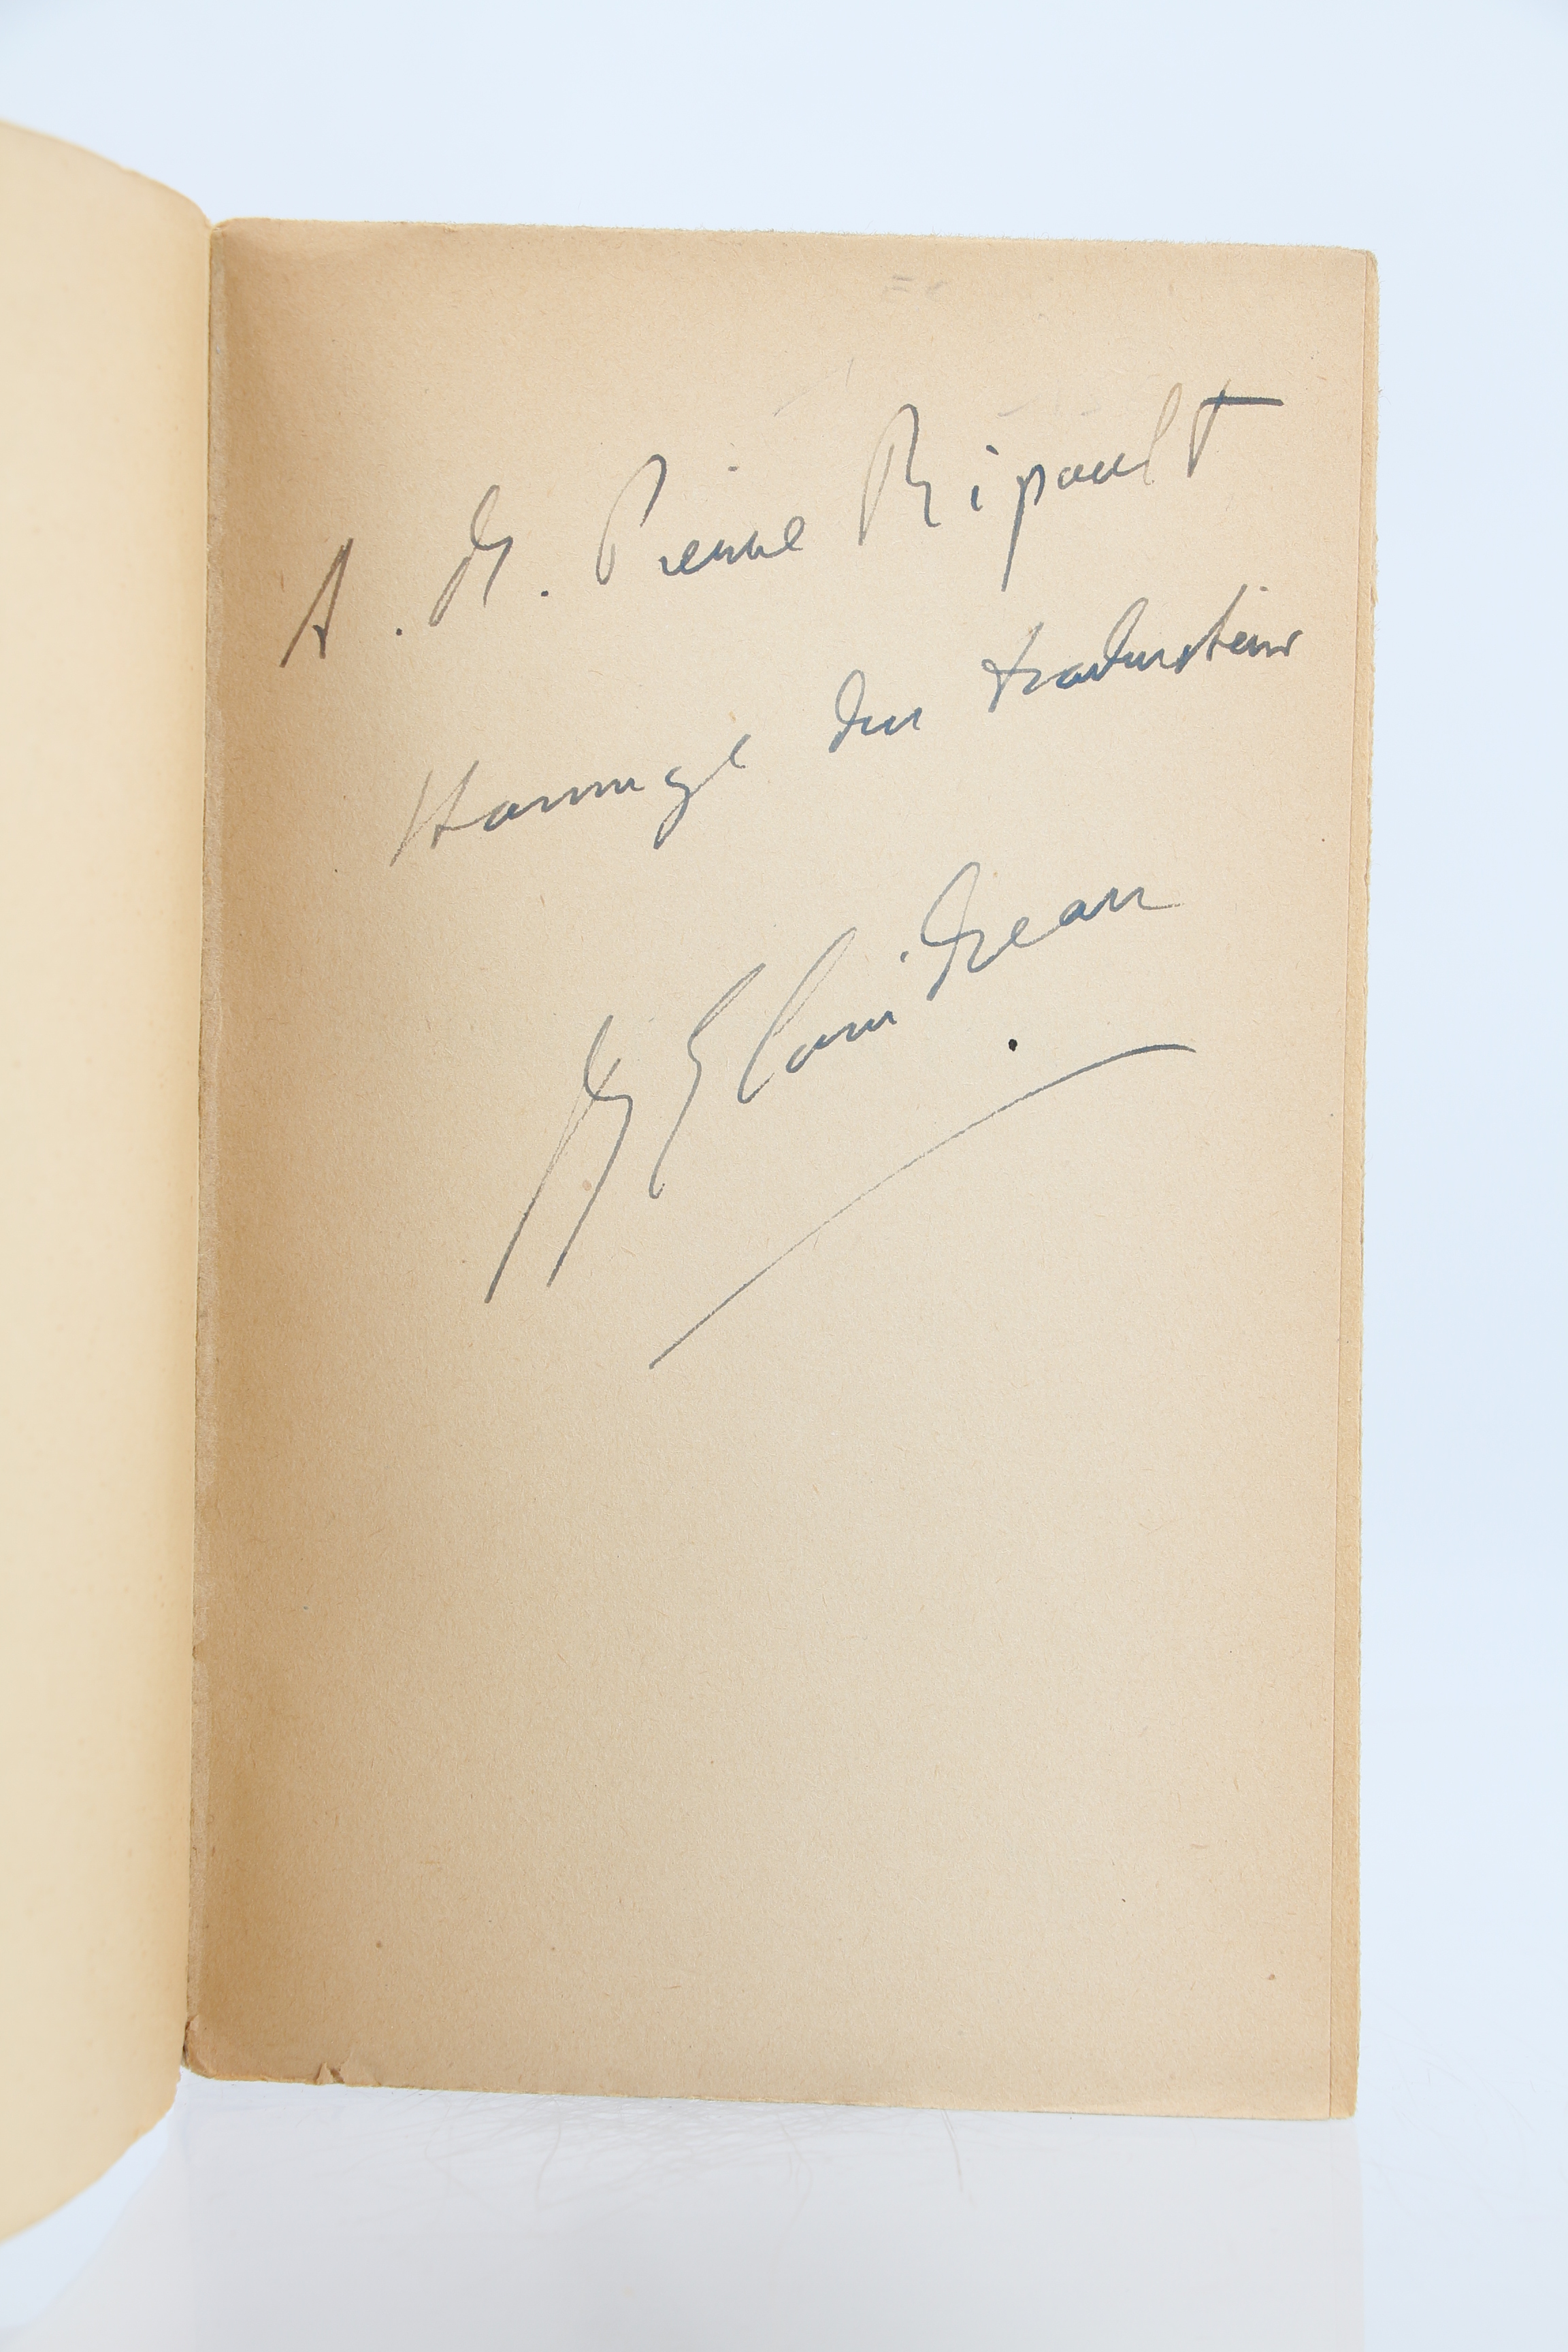 A. M. Pierre Ripault
Hommage du traducteur
M E Coindreau